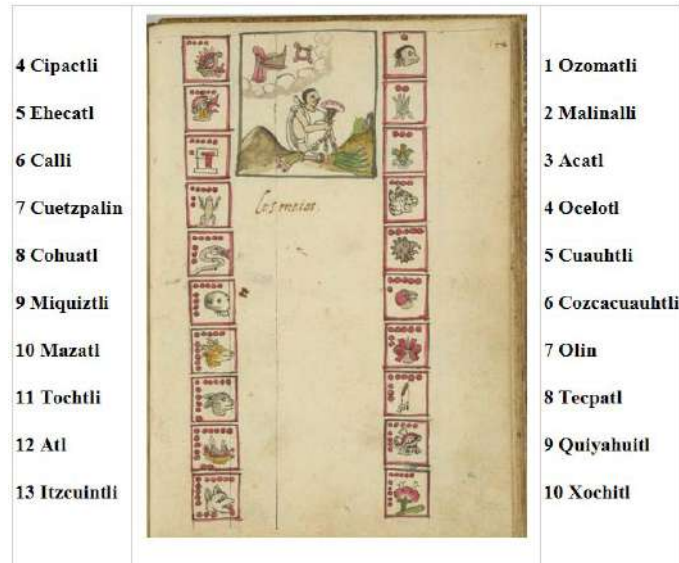 4 Cipactli
5 Ehecatl
6 Calli
7 Cuetzpalin
8 Cohuatl
9 Miquiztli
10 Mazatl
11 Tochtli
12 Atl
13 Itzcuintli
1 Ozomatli
2 Malinalli
3 Acatl
4 Ocelotl
5 Cuauhtli
6 Cozcacuauhtli
7 Olin
8 Tecpatl
9 Quiyahuitl
10 Xochitl